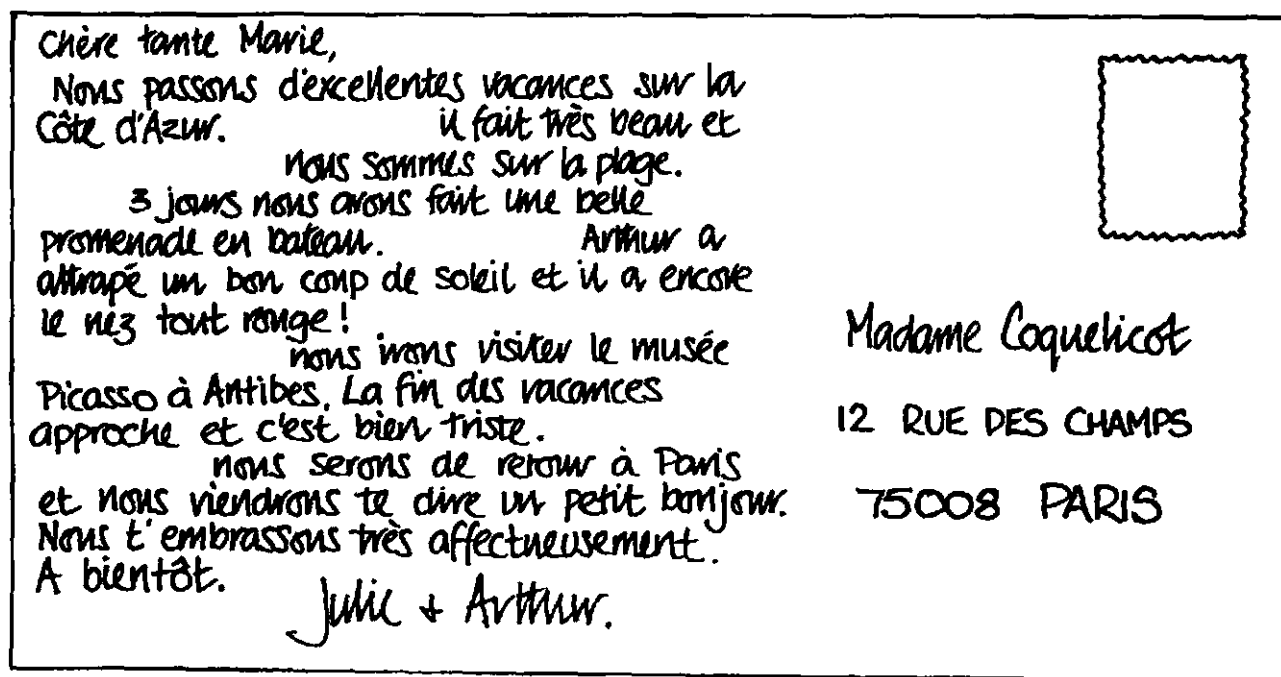 Chère tante Marie,
Nous passons d'excellentes vacances sur la
Côte d'Azur. il fait très beau et
nous sommes sur la plage.
3 jours nous avons fait une belle
promenade en bateau. Arthur a
attrapé un bon coup de soleil et il a encore
le nez tout rouge !
nous irons visiter le musée
Picasso à Antibes. La fin des vacances
approche et c'est bien triste.
nous serons de retour à Paris
et nous viendrons te dire un petit bonjour.
Nous t'embrassons très affectueusement.
A bientôt.
Julie + Arthur.
Madame Coquelicot
12 RUE DES CHAMPS
75008 PARIS